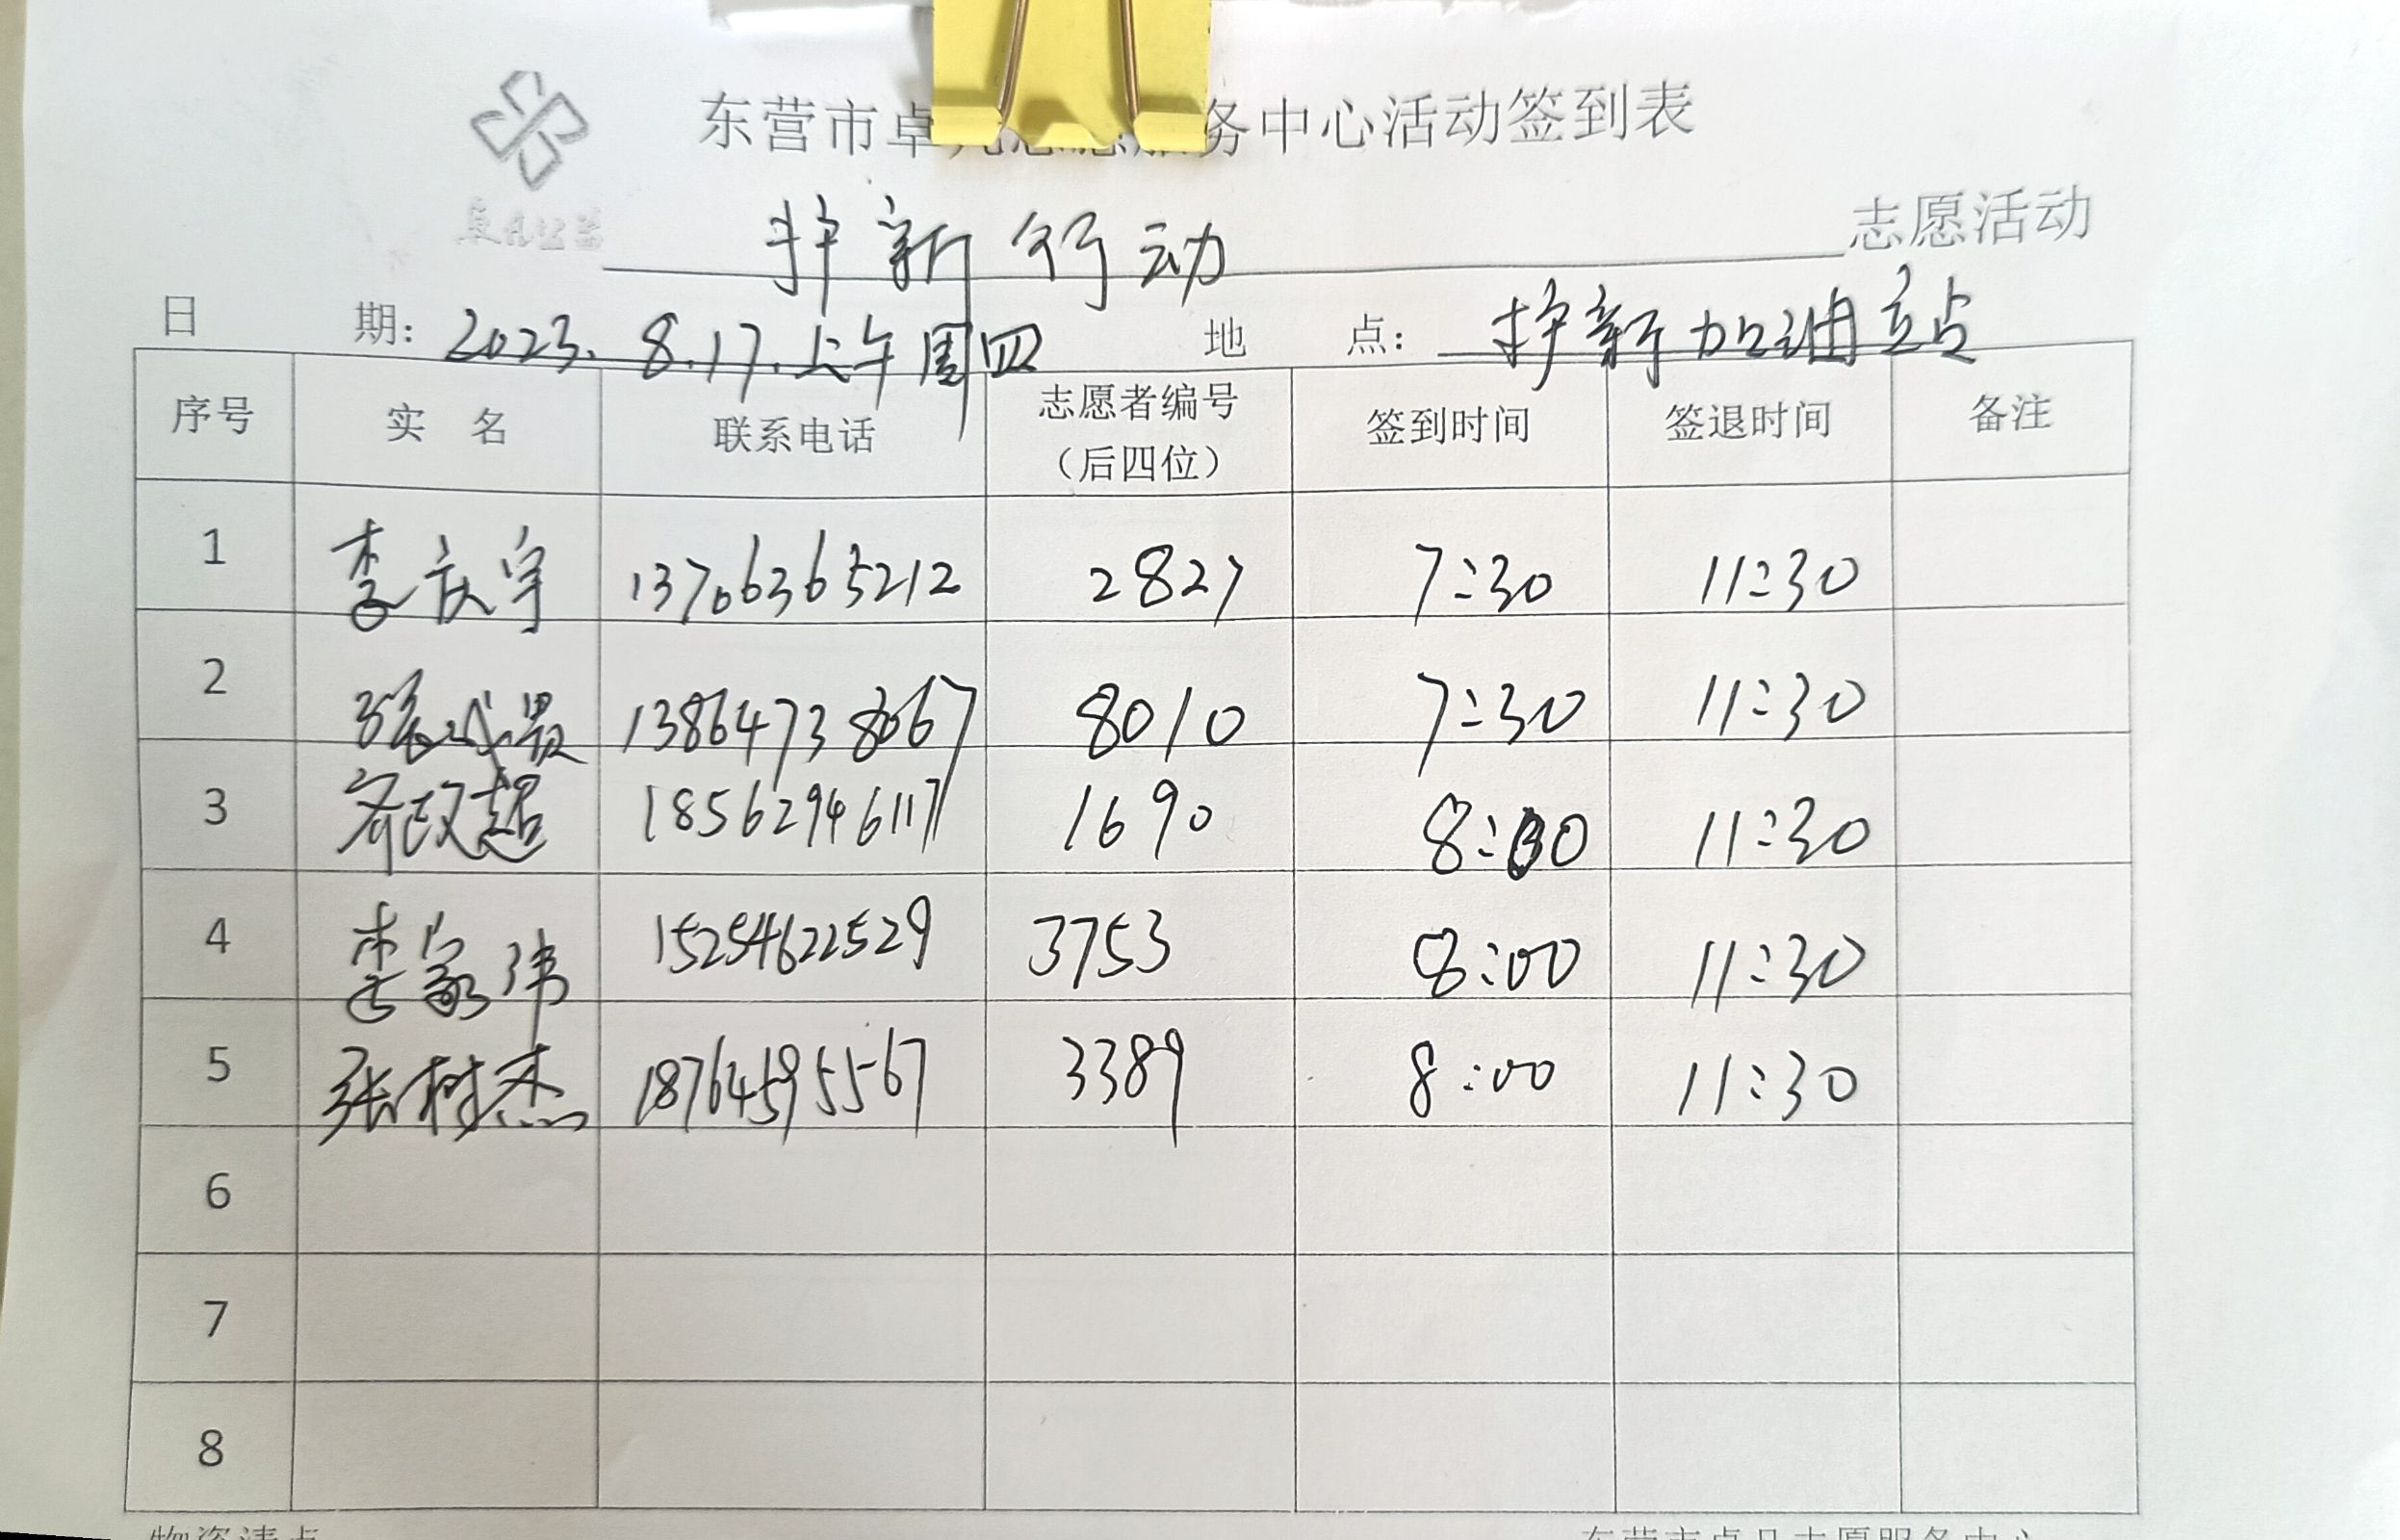 东营市卓凡志愿服务中心活动签到表
卓凡公益
护新行动 志愿活动
日 期: 2023.8.17.上午周四 地 点: 护新加油站
序号 实 名 联系电话 志愿者编号(后四位) 签到时间 签退时间 备注
1 李庆宇 13706365212 2827 7:30 11:30
2 张 13864738067 8010 7:30 11:30
3 齐政超 18562946117 1690 8:00 11:30
4 李家玮 15254622529 3753 8:00 11:30
5 张树杰 18764595567 3389 8:00 11:30
6
7
8
物资清点 东营市卓凡志愿服务中心